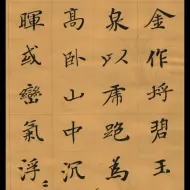 金作埒碧玉
泉以虎跑為
高卧山中沉
暉或巒氣浮